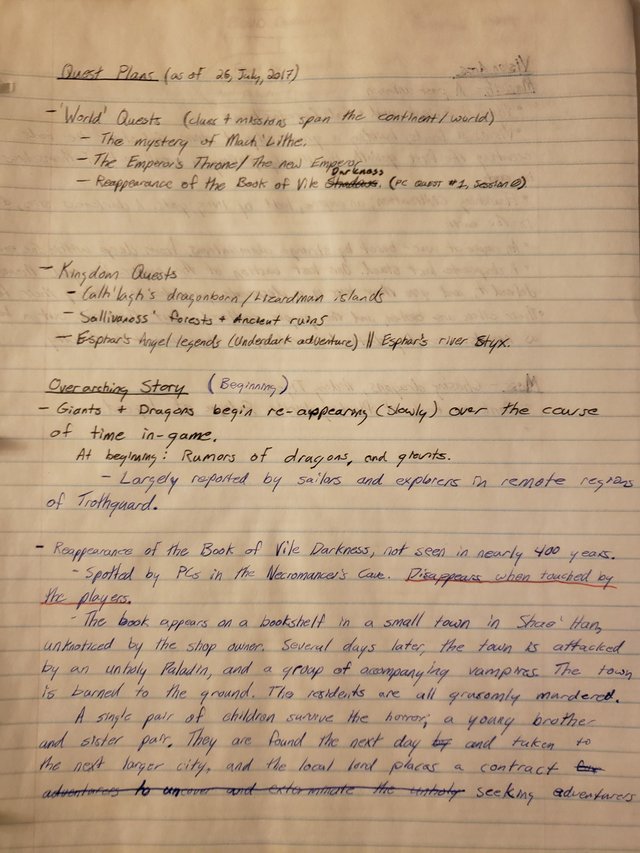 Quest Plans (as of 26, July, 2017)
- 'World' Quests (clues + missions span the continent/world)
- The mystery of Mach'Lithe.
- The Emperor's Throne/The new Emperor
Darkness
- Reappearance of the Book of Vile Shadows. (PC QUEST #1, Session 0)
- Kingdom Quests
- Calh'lagh's dragonborn/Lizardman islands
- Sallivanoss' forests + Ancient ruins
- Esphar's Angel legends (Underdark adventure) || Esphar's river Styx.
Overarching Story (Beginning)
- Giants + Dragons begin re-appearing (slowly) over the course
of time in-game.
At beginning: Rumors of dragons, and giants.
- Largely reported by sailors and explorers in remote regions
of Trothguard.
- Reappearance of the Book of Vile Darkness, not seen in nearly 400 years.
- Spotted by PCs in the Necromancer's Cave. Disappears when touched by
the players.
- The book appears on a bookshelf in a small town in Shao'Han,
unknoticed by the shop owner. Several days later, the town is attacked
by an unholy Paladin, and a group of accompanying vampires. The town
is burned to the ground. The residents are all grusomly murdered.
A single pair of children survive the horror; a young brother
and sister pair. They are found the next day by and taken to
the next larger city, and the local lord places a contract for
adventurers to uncover and exterminate the unholy seeking adventurers